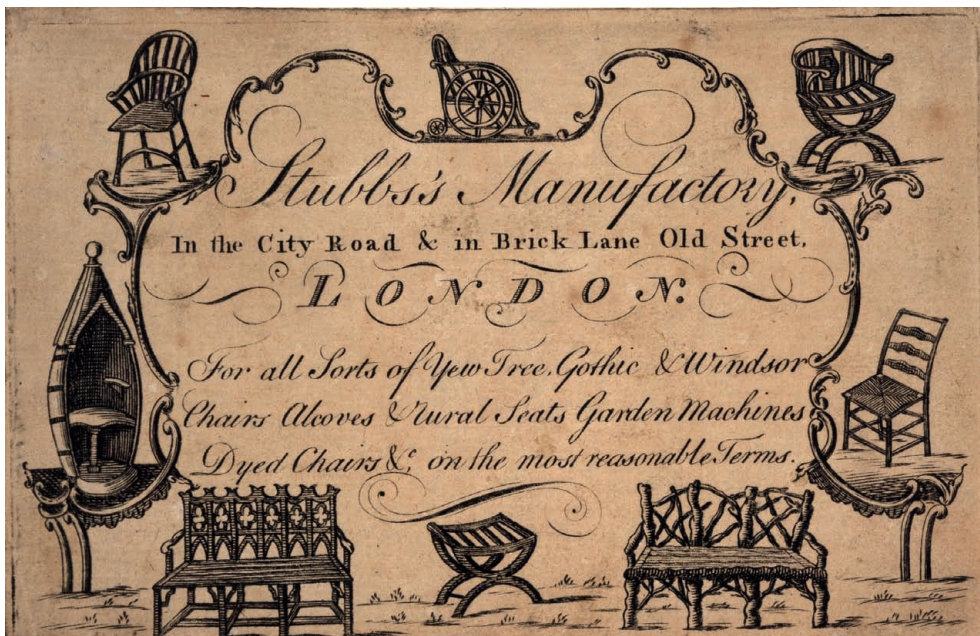 Stubbs's Manufactory,
In the City Road & in Brick Lane Old Street,
LONDON.
For all Sorts of Yew Tree, Gothic & Windsor
Chairs Alcoves & Rural Seats Garden Machines
Dyed Chairs &c. on the most reasonable Terms.